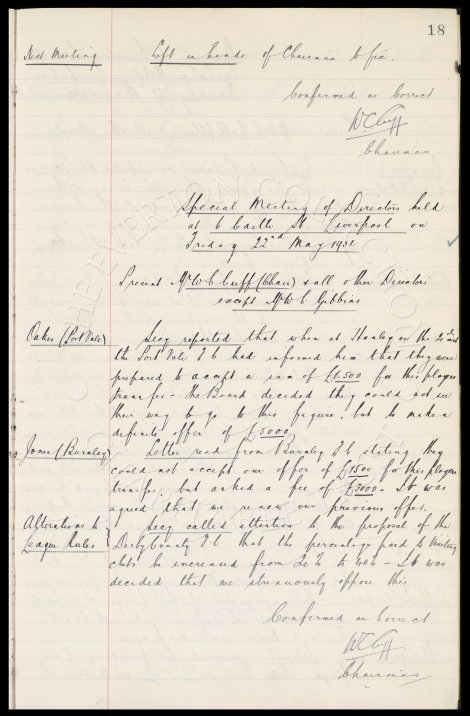 18
Next Meeting Left in hands of Chairman to fix.
Confirmed as Correct
WCCuff
Chairman
Special Meeting of Directors held
at 6 Castle St. Liverpool on
Friday 22nd May 1931
Present Mr W.C. Cuff (Chair) & all other Directors
except Mr W.C. Gibbins
Oakes (Port Vale) Secy reported that when at Hanley on the 20th inst
the Port Vale F.C. had informed him that they were
prepared to accept a sum of £6,500 for this players
transfer - the Board decided they could not see
their way to go to this figure, but to make a
definite offer of £5000.
Jones (Burnley) Letter read from Burnley F.C. stating they
could not accept our offer of £1500 for this players
transfer, but asked a fee of £3000 - It was
agreed that we renew our previous offer.
Alterations to Secy called attention to the proposal of the
League Rules Derby County F.C. that the percentage paid to visiting
clubs be increased from 20% to 40% - It was
decided that we strenuously oppose this.
Confirmed as Correct
WCCuff
Chairman
THE EVERTON COLLECTION